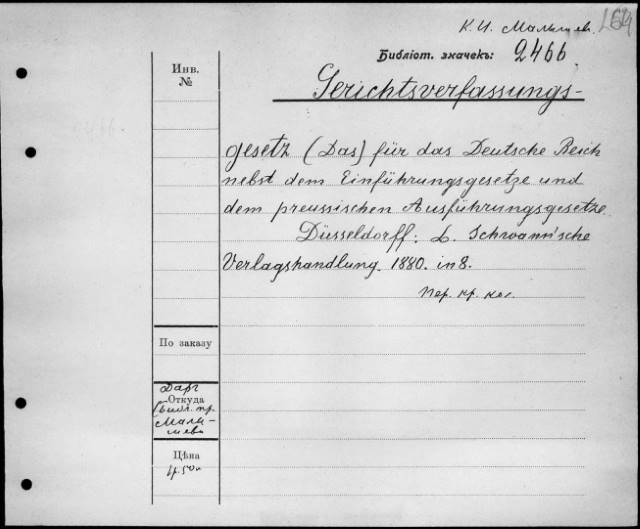 К. И. Малышев.
Библіот. значекъ: 2466
Gerichtsverfassungs-
Инв.
№
gesetz (Das) für das Deutsche Reich
nebst dem Einführungsgesetze und
dem preussischen Ausführungsgesetze.
Düsseldorff: L. Schwann'sche
Verlagshandlung. 1880. in 8.
пер. кр. ко.
По заказу
Даръ
Откуда
(библ. пр.
Малы-
шева
Цѣна
4.50к